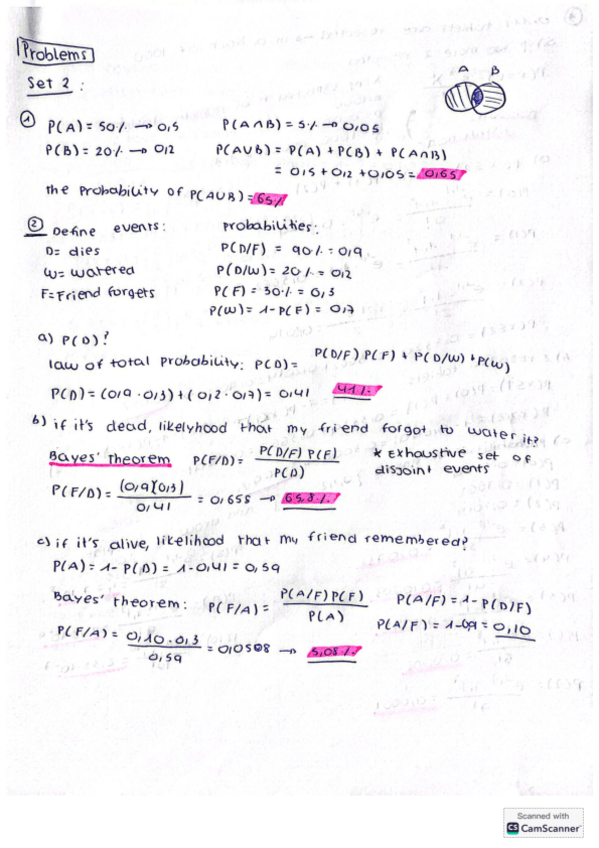 Problems
Set 2:
A B
① P(A) = 50% → 0,5 P(A∩B) = 5% → 0,05
P(B) = 20% → 0,2 P(A∪B) = P(A) + P(B) + P(A∩B)
= 0,5 + 0,2 + 0,05 = 0,65
the probability of P(A∪B) = 65%
② Define events: Probabilities:
D = dies P(D/F) = 90% = 0,9
W = watered P(D/W) = 20% = 0,2
F = Friend forgets P(F) = 30% = 0,3
P(W) = 1 - P(F) = 0,7
a) P(D)?
law of total probability: P(D) = P(D/F) P(F) + P(D/W) + P(W)
P(D) = (0,9 · 0,3) + (0,2 · 0,7) = 0,41 41%
b) if it's dead, likelyhood that my friend forgot to water it?
Bayes' Theorem P(F/D) = P(D/F) P(F) / P(D) * Exhaustive set of
disjoint events
P(F/D) = (0,9)(0,3) / 0,41 = 0,658 → 65,8%
c) if it's alive, likelihood that my friend remembered?
P(A) = 1 - P(D) = 1 - 0,41 = 0,59
Bayes' theorem: P(F/A) = P(A/F) P(F) / P(A) P(A/F) = 1 - P(D/F)
P(A/F) = 1 - 0,9 = 0,10
P(F/A) = 0,10 · 0,3 / 0,59 = 0,0508 → 5,08%
Scanned with
CS CamScanner